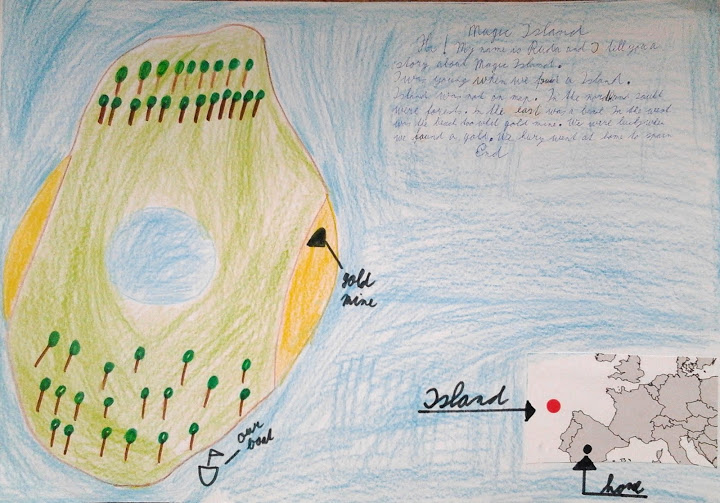 Magic Island
My name is and I tell you a
story about Magic Island.
I was young when we a Island.
Island was not on map. In the and
were forests. In the east was a In the
the beach gold mine. We were lucky when
we found a gold. We went at home to
End
gold
mine
our
boat
Island
home